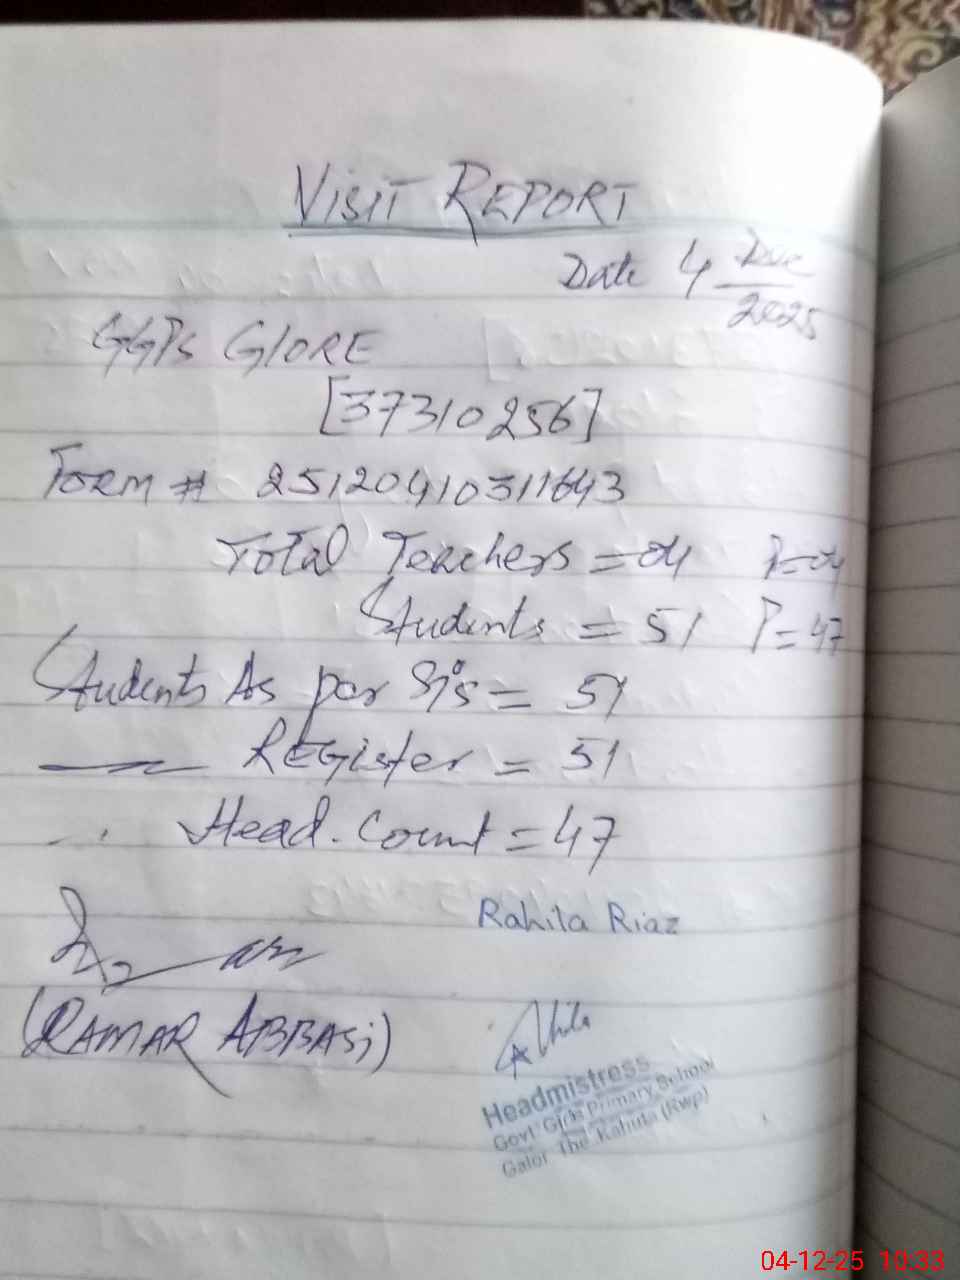 VISIT REPORT
Date 4 Dec
2025
GGPS GLORE
[37310256]
Form # 25120410311643
Total Teachers = 04 P=04
Students = 51 P=47
Students As per Sis = 51
Register = 51
Head.Count = 47
Rahila Riaz
(QAMAR ABBASi)
Headmistress
Govt Girls Primary School
Galor The Kahuta (Rwp)
04-12-25 10:33